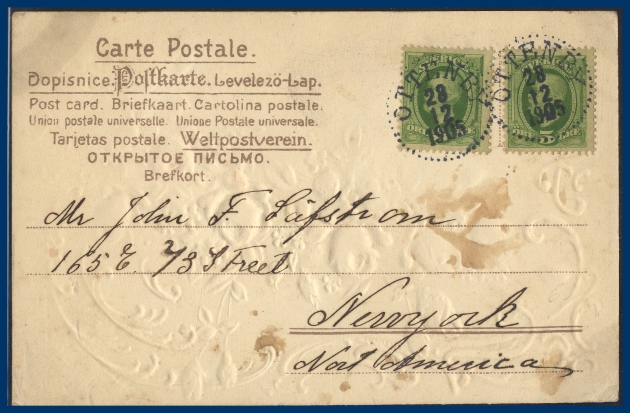 Carte Postale.
Dopisnice. Postkarte. Levelező-Lap.
Post card. Briefkaart. Cartolina postale.
Union postale universelle. Unione Postale universale.
Tarjetas postale. Weltpostverein.
ОТКРЫТОЕ ПИСЬМО.
Brefkort.
OTTENBY
28
12
1905
OTTENBY
28
12
1905
Mr John F. Läfstrom
165 E. 73 Street
Newyork
Nort America